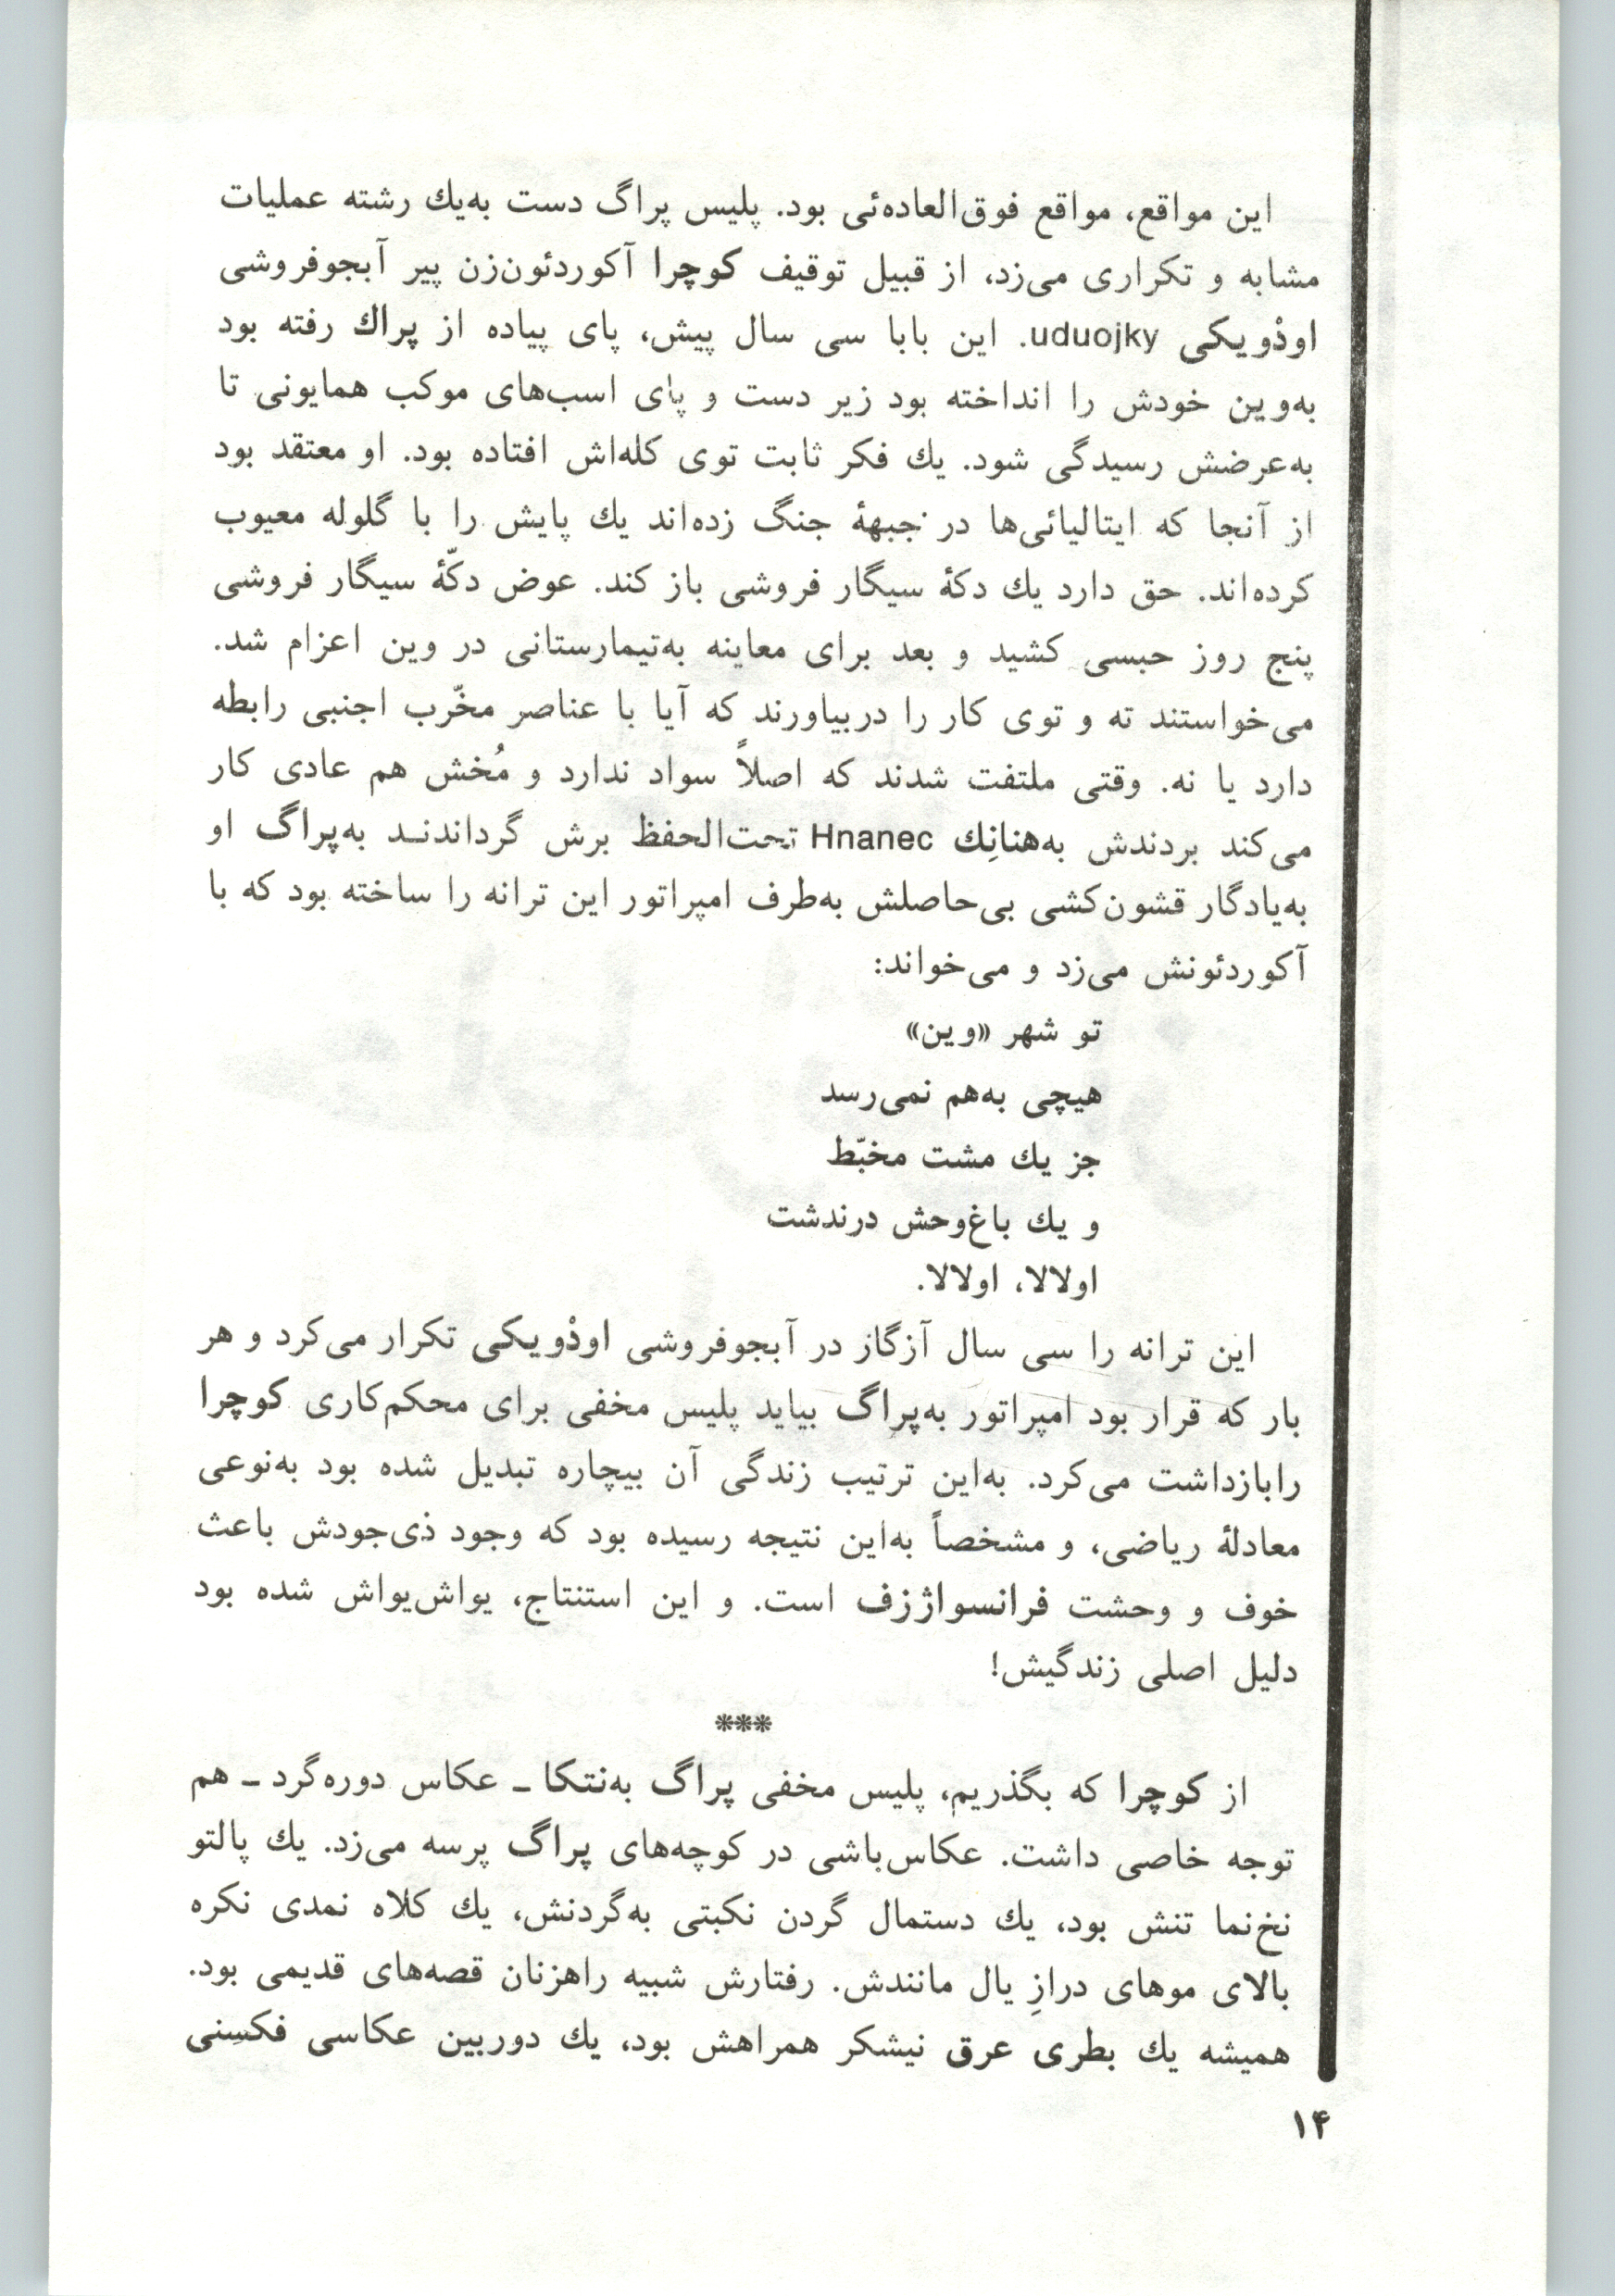 این مواقع، مواقع فوق‌العاده‌ئی بود. پلیس پراگ دست به‌یك رشته عملیات
مشابه و تکراری می‌زد، از قبیل توقیف کوچرا آکوردئون‌زن پیر آبجوفروشی
اوذْویکی uduojky. این بابا سی سال پیش، پای پیاده از پراك رفته بود
به‌وین خودش را انداخته بود زیر دست و پای اسب‌های موکب همایونی تا
به‌عرضش رسیدگی شود. یك فکر ثابت توی کله‌اش افتاده بود. او معتقد بود
از آنجا که ایتالیائی‌ها در جبههٔ جنگ زده‌اند یك پایش را با گلوله معیوب
کرده‌اند. حق دارد یك دکهٔ سیگار فروشی باز کند. عوض دکّهٔ سیگار فروشی
پنج روز حبسی کشید و بعد برای معاینه به‌تیمارستانی در وین اعزام شد.
می‌خواستند ته و توی کار را دربیاورند که آیا با عناصر مخّرب اجنبی رابطه
دارد یا نه. وقتی ملتفت شدند که اصلاً سواد ندارد و مُخش هم عادی کار
می‌کند بردندش به‌هنانِك Hnanec تحت‌الحفظ برش گرداندنـد به‌پراگ او
به‌یادگار قشون‌کشی بی‌حاصلش به‌طرف امپراتور این ترانه را ساخته بود که با
آکوردئونش می‌زد و می‌خواند:
تو شهر «وین»
هیچی به‌هم نمی‌رسد
جز یك مشت مخبّط
و یك باغ‌وحش درندشت
اولالا، اولالا.
این ترانه را سی سال آزگاز در آبجوفروشی اوذْویکی تکرار می‌کرد و هر
بار که قرار بود امپراتور به‌پراگ بیاید پلیس مخفی برای محکم‌کاری کوچرا
رابازداشت می‌کرد. به‌این ترتیب زندگی آن بیچاره تبدیل شده بود به‌نوعی
معادلهٔ ریاضی، و مشخصاً به‌این نتیجه رسیده بود که وجود ذی‌جودش باعث
خوف و وحشت فرانسواژزف است. و این استنتاج، یواش‌یواش شده بود
دلیل اصلی زندگیش!
***
از کوچرا که بگذریم، پلیس مخفی پراگ به‌نتکا ـ عکاس دوره‌گرد ـ هم
توجه خاصی داشت. عکاس‌باشی در کوچه‌های پراگ پرسه می‌زد. یك پالتو
نخ‌نما تنش بود، یك دستمال گردن نکبتی به‌گردنش، یك کلاه نمدی نکره
بالای موهای درازِ یال مانندش. رفتارش شبیه راهزنان قصه‌های قدیمی بود.
همیشه یك بطری عرق نیشکر همراهش بود، یك دوربین عکاسی فکسِنی
۱۴